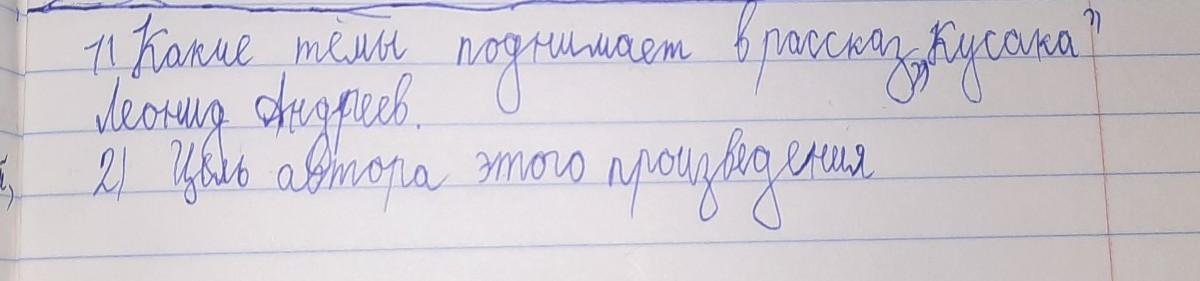 1) Какие темы поднимает в рассказ „Кусака"
Леонид Андреев.
2) Цель автора этого произведения